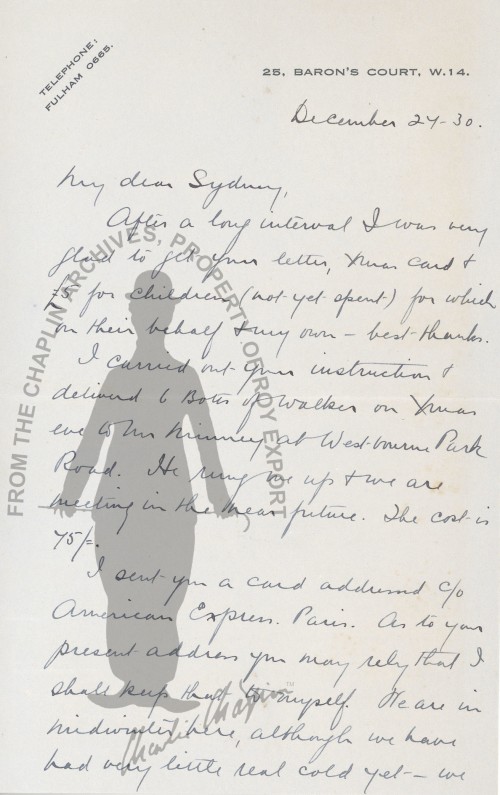 TELEPHONE:
FULHAM 0665.
25, BARON'S COURT, W.14.
December 27-30.
My dear Sydney,
After a long interval I was very
glad to get your letter, Xmas card &
£5 for children (not yet spent) for which
on their behalf & my own – best thanks.
I carried out your instruction &
delivered 6 Botts of Walker on Xmas
eve to Mr Minney at Westbourne Park
Road. He rung me up & we are
meeting in the near future. The cost is
75/=.
I sent you a card addressed c/o
American Express. Paris. As to your
present address you may rely that I
shall keep that to myself. We are in
midwinter here, although we have
had very little real cold yet – we
FROM THE CHAPLIN ARCHIVES, PROPERTY OF ROY EXPORT
Charlie Chaplin